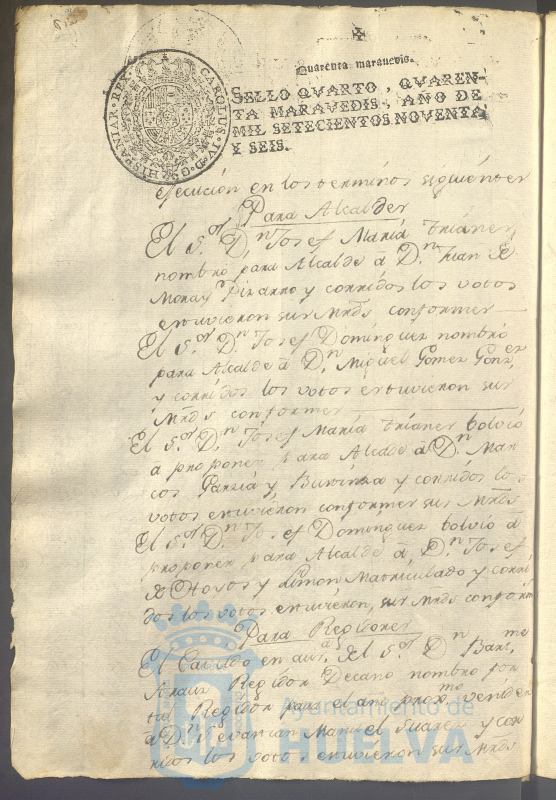 Quarenta maravedis.
SELLO QVARTO, QVAREN-
TA MARAVEDIS, AÑO DE
MIL SETECIENTOS NOVENTA
Y SEIS.
CAROLUS IV D. G. HISPANIAR. REX
ejecución en los terminos siguientes
Para Alcaldes
El S.or D.n Josef Maria Trianes,
nombró para Alcalde à D.n Juan de
Mora y Pizarro y corridos los votos
estuvieron sus Mrds conformes
El S.or D.n Josef Dominguez nombró
para Alcalde à D.n Miguel Gomez Gonz.ez
y corridos los votos estuvieron sus
Mrds conformes
El S.or D.n Josef Maria Trianes bolvió
a proponer para Alcalde à D.n Mar
cos Garzia y y corridos los
votos estuvieron conformes sus Mrds
El S.or D.n Josef Dominguez bolvió à
proponer para Alcalde à D.n Josef
de Hoyos y Limon Matriculado y corri
dos los votos estuvieron sus Mrds conform
Para Regidores
El Cavildo en aus.a del S.or D.n Bart.me
Regidor Decano nombró por
tal Regidor para el año prox.mo venider
à D.n Manuel Suarez y cor
ridos los votos estuvieron sus Mrds
Ayuntamiento de
HUELVA